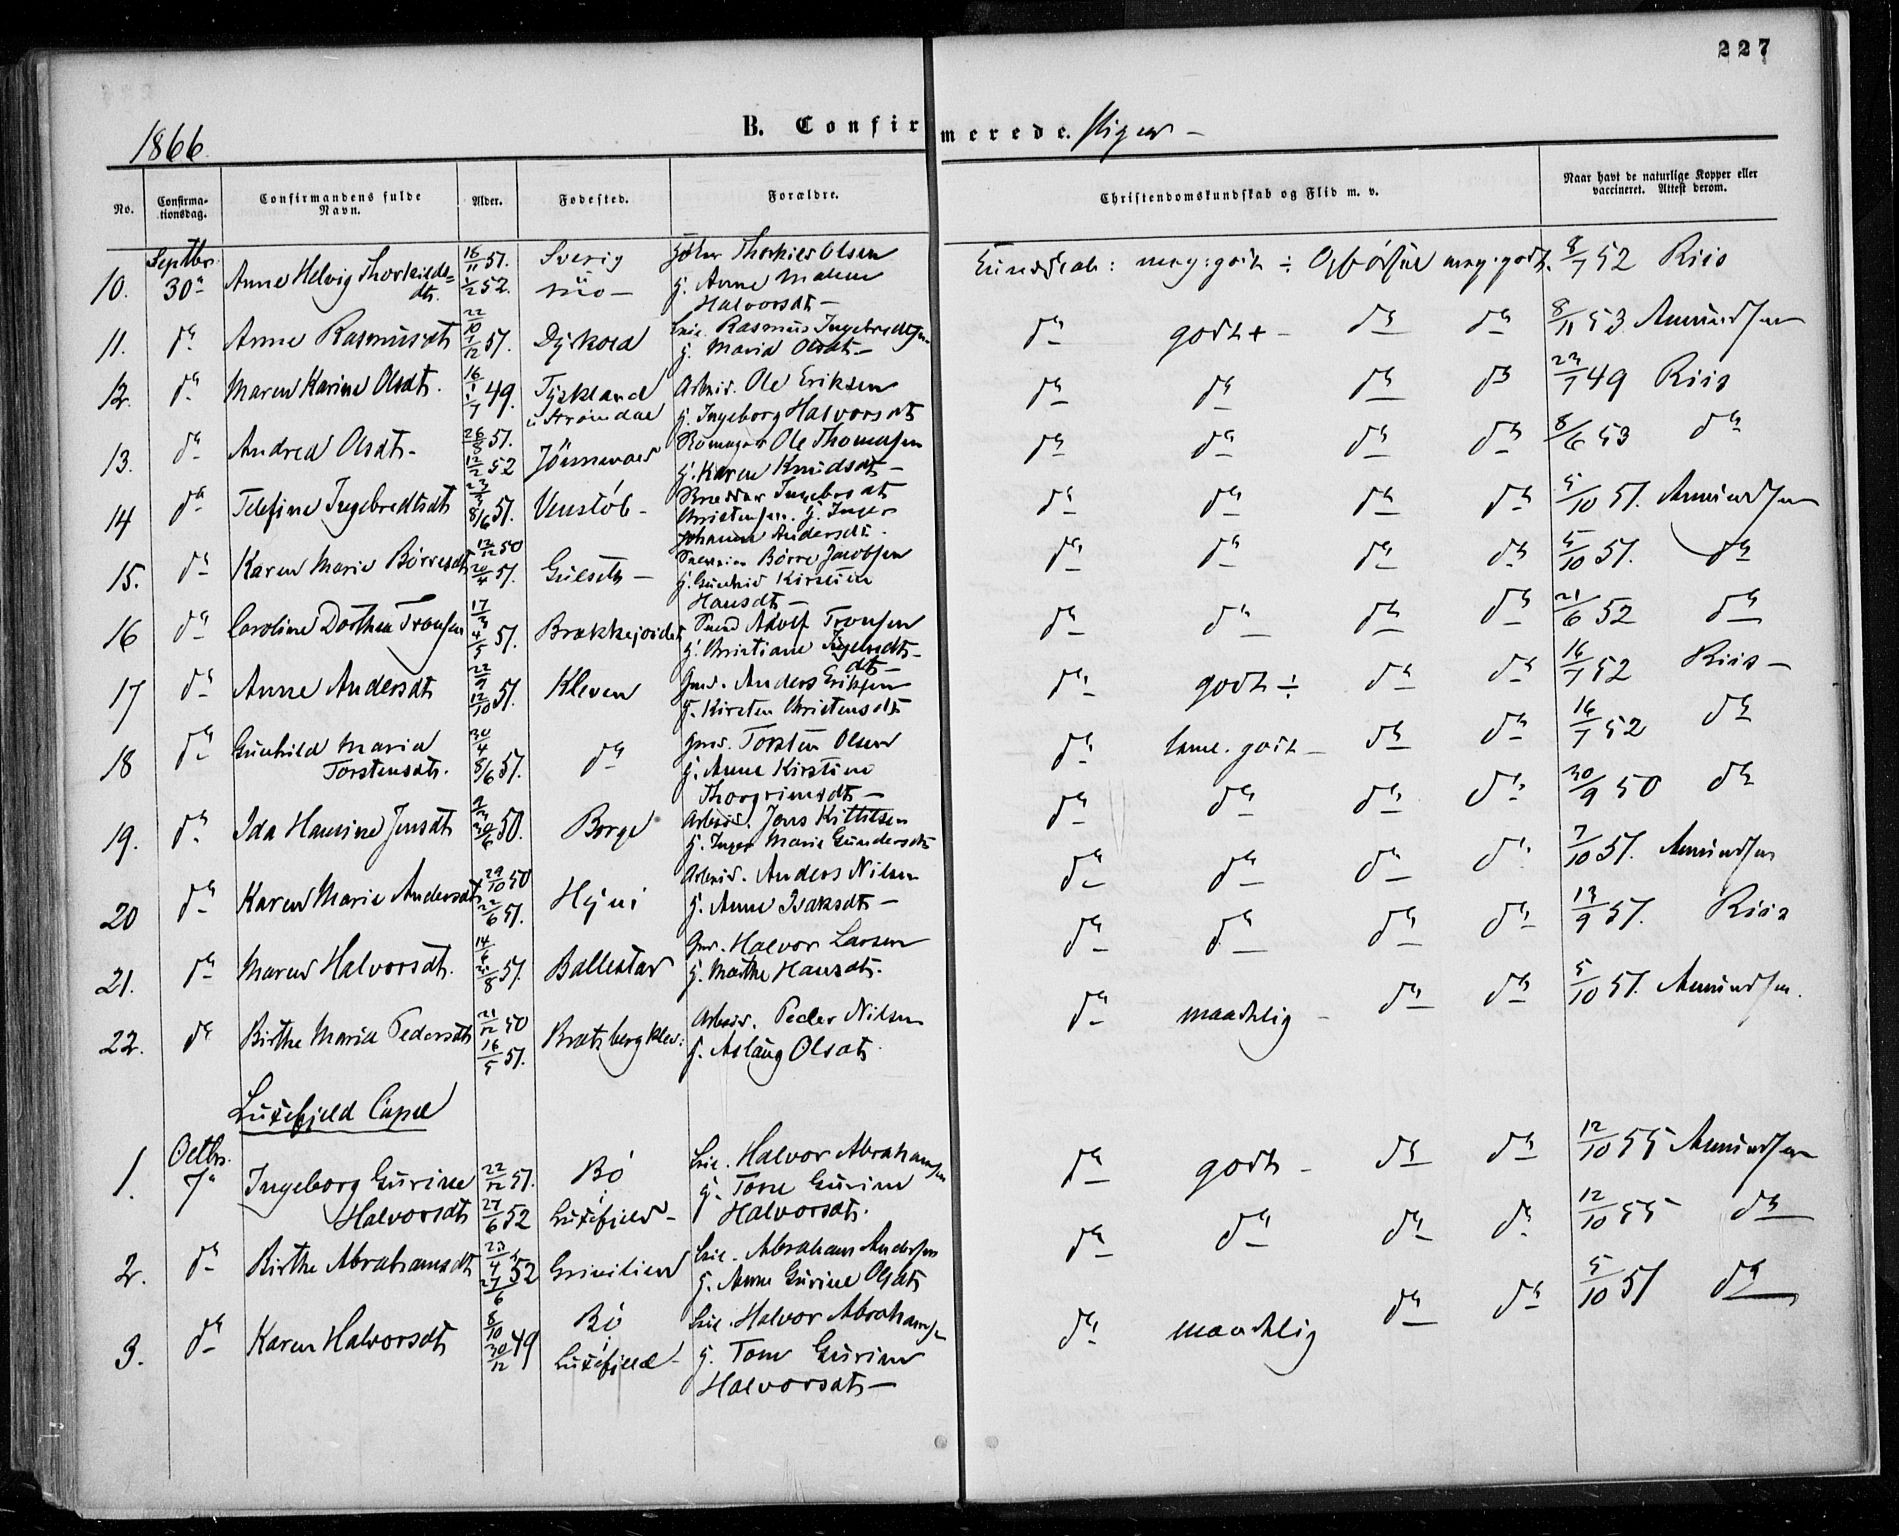 227
1866.
B. Confirmerede. Piger –
No.
Confirma-
tionsdag.
Confirmandens fulde
Navn.
Alder.
Fødested.
Forældre.
Christendomskundskab og Flid m. v.
Naar havt de naturlige Kopper eller
vaccineret. Attest derom.
10. Septbr. 30 Anne Helvig Thorkilds= dtr. 16/11 51. 1/2 52. Olsen g. Anne Malene Halvorsdtr – Kundskab: meg: godt ÷ Opførsel meg: godt. 8/7 52 Riis
11. do Anne Rasmusdtr 22/10 1/12 51. Rasmus Ingebredtsen g. Maria Olsdtr – do godt + – do do 8/11 53 Amundsen
12. do Maren Karine Olsdtr. 16/1 1/7 49. Ole Eriksen g. Ingeborg Halvorsdtr do do do do 23/7 49 Riis
13. do Andrea Olsdtr – 26/8 51. 12/2 52 Ole Thomasen g. Karen Knudsdtr – do do do do 8/6 53 do
14 do Telefine Ingebredtsdtr 23/3 8/6 51. Venstøb – Christensen. g. Inger Johanne Andersdtr. do do do do 5/10 51. Amundsen
15. do Karen Marie Børresdtr 12/12 50 20/4 51. Gulseth – Børre Jacobsen g. Gunhild Kirstine Hansdtr – do do do do 5/10 51. do
16 do Caroline Dorthea Tronsen 17/3 4/5 51. Adolf Tronsen g. Christiane do do do do 21/6 52 do
17 do Anne Andersdtr 22/9 12/10 51. Kleven Anders Eriksen g. Kirsten Christensdtr do godt ÷ do do 16/7 52 Riis –
18 do Gunhild Maria Torstensdtr. 30/4 8/6 51. do Torsten Olsen g. Anne Kirstine Thorgrimsdtr – do godt – do do 16/7 52 do
19. do Ida Hansine Jensdtr 9/3 30/6 50. Borge Arbeid. Jens Kittilsen g. Inger Marie Gundersdtr do do do do 30/9 50 do
20 do Karen Marie Andersdtr 29/10 50 22/6 51. Hejni Arbeid. Anders Nilsen g. Anne Isaksdtr – do do do do 7/10 51. Amundsen
21. do Maren Halvorsdtr. 14/6 31/8 51. Ballestad Halvor Larsen g. Marthe Hansdtr. do do do do 13/9 51. Riis
22. do Birthe Maria Pedersdtr 21/12 50 16/5 51. Bratsbergklev: Arbeid. Peder Nilsen g. Aslaug Olsdtr do maadelig – do do 5/10 51. Amundsen.
Luxefjeld Capel
1. Octbr. 7 Ingeborg Gurine Halvorsdtr 22/12 51. 27/6 52 Bö Luxefjeld – Halvor Abrahamsen g. Tone Gurine Halvorsdtr. do godt – do do 12/10 55 Amundsen
2. do Birthe Abrahamsdtr 23/4 52 27/6 Abraham Andersen g. Anne Gurine Olsdtr do do do do 12/10 55 do
3. do Karen Halvorsdtr 8/10 49 30/12 Bö Luxefjeld – Halvor Abrahamsen g. Tone Gurine Halvorsdtr – do maadelig do do 5/10 51 do